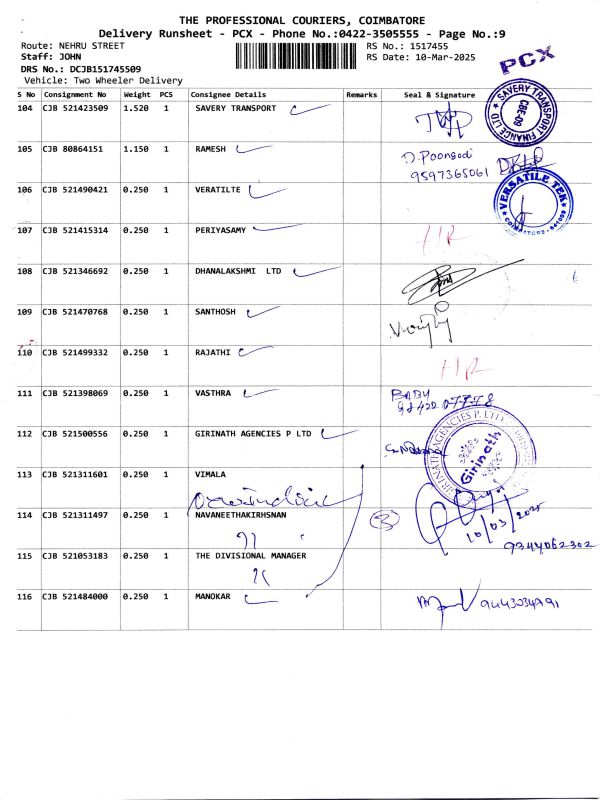 THE PROFESSIONAL COURIERS, COIMBATORE
Delivery Runsheet - PCX - Phone No.:0422-3505555 - Page No.:9
Route: NEHRU STREET
RS No.: 1517455
Staff: JOHN
RS Date: 10-Mar-2025
DRS No.: DCJB151745509
Vehicle: Two Wheeler Delivery
PCX
S No Consignment No Weight PCS Consignee Details Remarks Seal & Signature
104 CJB 521423509 1.520 1 SAVERY TRANSPORT
SAVERY TRANSPORT FINANCE LTD
CBE-09
105 CJB 80864151 1.150 1 RAMESH D. Poongodi
9597365061
106 CJB 521490421 0.250 1 VERATILTE
VERSATILE TEK
107 CJB 521415314 0.250 1 PERIYASAMY
108 CJB 521346692 0.250 1 DHANALAKSHMI LTD
109 CJB 521470768 0.250 1 SANTHOSH
110 CJB 521499332 0.250 1 RAJATHI
111 CJB 521398069 0.250 1 VASTHRA BABU
112 CJB 521500556 0.250 1 GIRINATH AGENCIES P LTD
GIRINATH AGENCIES P. LTD
Girinath
113 CJB 521311601 0.250 1 VIMALA
114 CJB 521311497 0.250 1 NAVANEETHAKIRHSNAN 3
10/03/2025
9344062302
115 CJB 521053183 0.250 1 THE DIVISIONAL MANAGER
116 CJB 521484000 0.250 1 MANOKAR